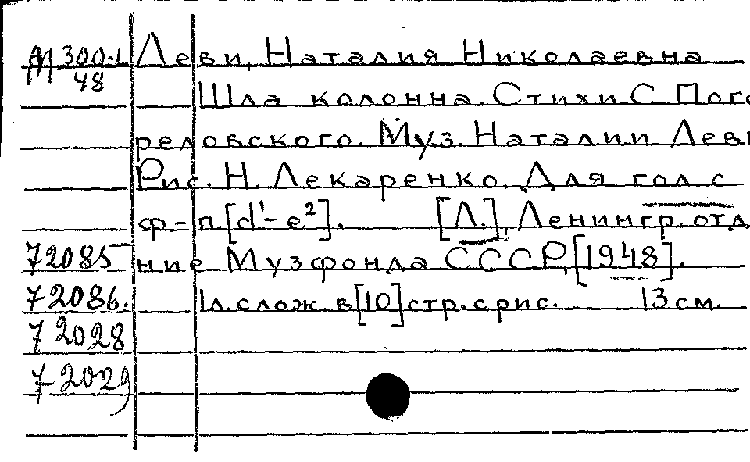 М 300-1 Леви, Наталия Николаевна
48
Шла колонна. Стихи С. Пого
реловского. Муз. Наталии Леви
Рис. Н. Лекаренко. Для гол. с
ф-п. [d¹-e²]. [Л.], Ленингр. отд
72085 ние Музфонда СССР, [1948].
72086. 1 л. слож. в [10] стр. с рис. 13 см.
72028
72029